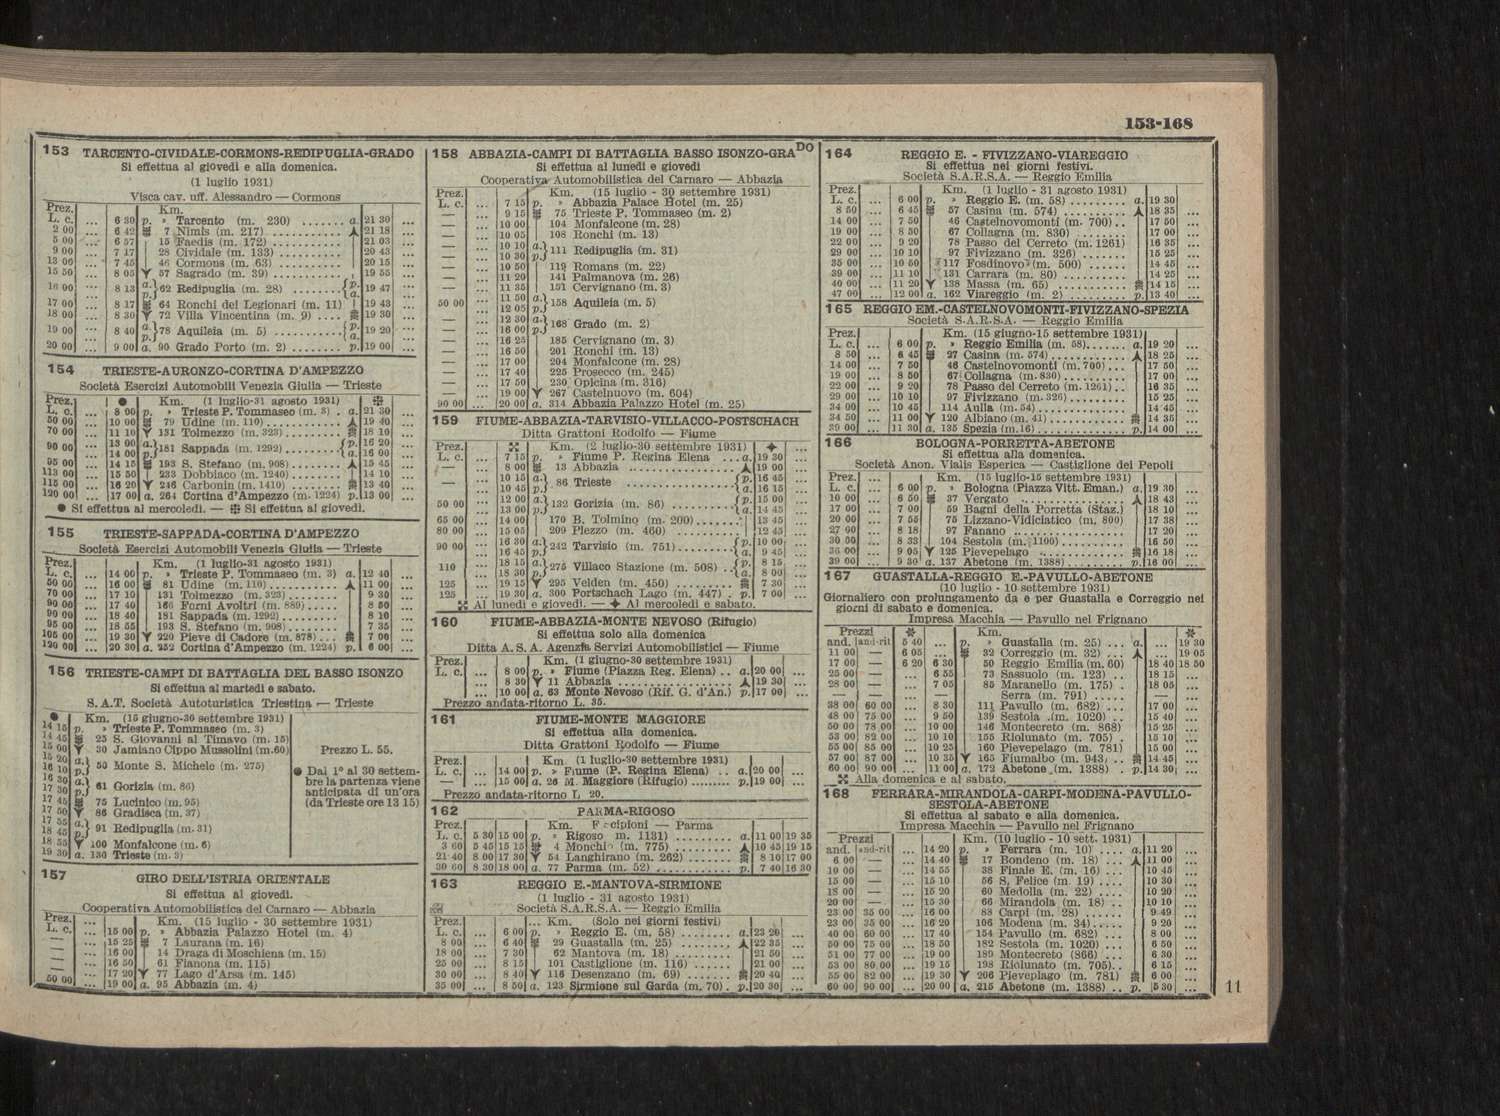 153-168
153 TARCENTO-CIVIDALE-CORMONS-REDIPUGLIA-GRADO
Si effettua al giovedì e alla domenica.
(1 luglio 1931)
Visca cav. uff. Alessandro — Cormons
Prez. Km.
L. c. ... 6 30 p. » Tarcento (m. 230) ....... a. 21 30 ...
2 00 ... 6 42 7 Nimis (m. 217) ........... 21 18 ...
5 00 ... 6 57 15 Faedis (m. 172) .......... 21 03 ...
9 00 ... 7 17 28 Cividale (m. 133) .......... 20 43 ...
13 00 ... 7 45 46 Cormons (m. 63) .......... 20 15 ...
15 50 ... 8 05 57 Sagrado (m. 39) ........... 19 55 ...
16 00 ... 8 13 a. p. 62 Redipuglia (m. 28) ....... p. a. 19 47 ...
17 00 ... 8 17 64 Ronchi dei Legionari (m. 11) 19 43 ...
18 00 ... 8 30 72 Villa Vincentina (m. 9) .... 19 30 ...
19 00 ... 8 40 a. p. 78 Aquileia (m. 5) ........... p. a. 19 20 ...
20 00 ... 9 00 a. 90 Grado Porto (m. 2) ........ p. 19 00 ...
154 TRIESTE-AURONZO-CORTINA D'AMPEZZO
Società Esercizi Automobili Venezia Giulia — Trieste
Prez. ● Km. (1 luglio-31 agosto 1931)
L. c. ... 8 00 p. » Trieste P. Tommaseo (m. 3) . a. 21 30 ...
50 00 ... 10 00 79 Udine (m. 110) ............ 19 40 ...
70 00 ... 11 10 131 Tolmezzo (m. 323) ......... 18 10 ...
90 00 ... 13 00 a. 14 00 p. 181 Sappada (m. 1292) ......... p. 16 20 a. 16 00 ...
95 00 ... 14 15 193 S. Stefano (m. 908) ........ 15 45 ...
113 00 ... 15 50 233 Dobbiaco (m. 1240) ........ 14 10 ...
115 00 ... 16 20 246 Carbonin (m. 1410) ........ 13 40 ...
120 00 ... 17 00 a. 264 Cortina d'Ampezzo (m. 1224) p. 13 00 ...
● Si effettua al mercoledì. — Si effettua al giovedì.
155 TRIESTE-SAPPADA-CORTINA D'AMPEZZO
Società Esercizi Automobili Venezia Giulia — Trieste
Prez. Km. (1 luglio-31 agosto 1931)
L. c. ... 14 00 p. » Trieste P. Tommaseo (m. 3) a. 12 40 ...
50 00 ... 16 00 81 Udine (m. 110) ............ 11 00 ...
70 00 ... 17 10 131 Tolmezzo (m. 323) ......... 9 30 ...
90 00 ... 17 40 160 Forni Avoltri (m. 889) ..... 8 50 ...
90 00 ... 18 40 181 Sappada (m. 1292) ......... 8 10 ...
95 00 ... 18 55 193 S. Stefano (m. 908) ........ 7 35 ...
105 00 ... 19 30 220 Pieve di Cadore (m. 878) ... 7 00 ...
120 00 ... 20 30 a. 252 Cortina d'Ampezzo (m. 1224) p. 6 00 ...
156 TRIESTE-CAMPI DI BATTAGLIA DEL BASSO ISONZO
Si effettua al martedì e sabato.
S. A. T. Società Autoturistica Triestina — Trieste
● Km. (15 giugno-30 settembre 1931)
14 15 p. » Trieste P. Tommaseo (m. 3)
14 45 25 S. Giovanni al Timavo (m. 15)
15 00 30 Jamiano Cippo Mussolini (m. 60)
15 20 a. 16 10 p. 50 Monte S. Michele (m. 275)
16 30 a. 17 30 p. 61 Gorizia (m. 86)
17 45 75 Lucinico (m. 95)
17 50 86 Gradisca (m. 37)
17 55 a. 18 45 p. 91 Redipuglia (m. 31)
18 55 100 Monfalcone (m. 6)
19 30 a. 130 Trieste (m. 3)
Prezzo L. 55.
● Dal 1° al 30 settem-
bre la partenza viene
anticipata di un'ora
(da Trieste ore 13 15)
157 GIRO DELL'ISTRIA ORIENTALE
Si effettua al giovedì.
Cooperativa Automobilistica del Carnaro — Abbazia
Prez. ... Km. (15 luglio - 30 settembre 1931)
L. c. ... 15 00 p. » Abbazia Palazzo Hotel (m. 4)
— ... 15 25 7 Laurana (m. 16)
— ... 16 00 14 Draga di Moschiena (m. 15)
— ... 16 50 61 Fianona (m. 115)
— ... 17 20 77 Lago d'Arsa (m. 145)
50 00 ... 19 00 a. 95 Abbazia (m. 4)
158 ABBAZIA-CAMPI DI BATTAGLIA BASSO ISONZO-GRADO
Si effettua al lunedì e giovedì
Cooperativa Automobilistica del Carnaro — Abbazia
Prez. Km. (15 luglio - 30 settembre 1931)
L. c. ... 7 15 p. » Abbazia Palace Hotel (m. 25)
— ... 9 15 75 Trieste P. Tommaseo (m. 2)
— ... 10 00 104 Monfalcone (m. 28)
— ... 10 05 108 Ronchi (m. 13)
— ... 10 10 a. 10 30 p. 111 Redipuglia (m. 31)
— ... 10 50 119 Romans (m. 22)
— ... 11 20 141 Palmanova (m. 26)
— ... 11 35 151 Cervignano (m. 3)
50 00 ... 11 50 a. 12 05 p. 158 Aquileia (m. 5)
— ... 12 30 a. 16 00 p. 168 Grado (m. 2)
— ... 16 25 185 Cervignano (m. 3)
— ... 16 50 201 Ronchi (m. 13)
— ... 17 00 204 Monfalcone (m. 28)
— ... 17 40 225 Prosecco (m. 245)
— ... 17 50 230 Opicina (m. 316)
— ... 19 00 267 Castelnuovo (m. 604)
90 00 ... 20 00 a. 314 Abbazia Palazzo Hotel (m. 25)
159 FIUME-ABBAZIA-TARVISIO-VILLACCO-POSTSCHACH
Ditta Grattoni Rodolfo — Fiume
Prez. Km. (2 luglio-30 settembre 1931) ...
L. c. ... 7 15 p. » Fiume P. Regina Elena ... a. 19 30 ...
— ... 8 00 13 Abbazia .................. 19 00 ...
— ... 10 15 a. 10 45 p. 86 Trieste ................ p. 16 45 a. 16 15 ...
50 00 ... 12 00 a. 13 00 p. 132 Gorizia (m. 86) .......... p. 15 00 a. 14 45 ...
65 00 ... 14 00 170 B. Tolmino (m. 200) ....... 13 45 ...
80 00 ... 15 05 209 Plezzo (m. 460) .......... 12 45 ...
90 00 ... 16 30 a. 16 45 p. 242 Tarvisio (m. 751) ......... p. 10 00 a. 9 45 ...
110 ... 18 15 a. 18 30 p. 275 Villaco Stazione (m. 508) .. p. 8 15 a. 8 00 ...
125 ... 19 15 295 Velden (m. 450) .......... 7 30 ...
125 ... 19 30 a. 300 Portschach Lago (m. 447) . p. 7 00 ...
Al lunedì e giovedì. — Al mercoledì e sabato.
160 FIUME-ABBAZIA-MONTE NEVOSO (Rifugio)
Si effettua solo alla domenica
Ditta A. S. A. Agenzia Servizi Automobilistici — Fiume
Prez. Km. (1 giugno-30 settembre 1931)
L. c. ... 8 00 p. » Fiume (Piazza Reg. Elena) .. a. 20 00 ...
... 8 30 11 Abbazia .................. 19 30 ...
... 10 00 a. 63 Monte Nevoso (Rif. G. d'An.) p. 17 00 ...
Prezzo andata-ritorno L. 35.
161 FIUME-MONTE MAGGIORE
Si effettua alla domenica.
Ditta Grattoni Rodolfo — Fiume
Prez. Km (1 luglio-30 settembre 1931)
L. c. ... 14 00 p. » Fiume (P. Regina Elena) .. a. 20 00 ...
— ... 15 00 a. 26 M. Maggiore (Rifugio) ........ p. 19 00 ...
Prezzo andata-ritorno L 20.
162 PARMA-RIGOSO
Prez. Km. F cipioni — Parma
L. c. 5 30 15 00 p. » Rigoso m. 1131) ......... a. 11 00 19 35
3 60 5 45 15 15 4 Monchi (m. 775) .......... 10 45 19 15
21 40 8 00 17 30 54 Langhirano (m. 262) ....... 8 10 17 00
30 60 8 30 18 00 a. 77 Parma (m. 52) ........... p. 7 40 16 30
163 REGGIO E.-MANTOVA-SIRMIONE
(1 luglio - 31 agosto 1931)
Società S.A.R.S.A. — Reggio Emilia
Prez. ... Km. (Solo nei giorni festivi)
L. c. ... 6 00 p. » Reggio E. (m. 58) ........ a. 23 20 ...
8 00 ... 6 40 29 Guastalla (m. 25) ........ 22 35 ...
18 00 ... 7 30 62 Mantova (m. 18) ......... 21 50 ...
25 00 ... 8 15 101 Castiglione (m. 116) ...... 21 00 ...
30 00 ... 8 40 116 Desenzano (m. 69) ........ 20 40 ...
35 00 ... 8 50 a. 123 Sirmione sul Garda (m. 70) . p. 20 30 ...
164 REGGIO E. - FIVIZZANO-VIAREGGIO
Si effettua nei giorni festivi.
Società S.A.R.S.A. — Reggio Emilia
Prez. Km. (1 luglio - 31 agosto 1931)
L. c. ... 6 00 p. » Reggio E. (m. 58) ......... a. 19 30
8 50 ... 6 45 57 Casina (m. 574) ........... 18 35 ...
14 00 ... 7 50 46 Castelnovomonti (m. 700) .. 17 50 ...
19 00 ... 8 50 67 Collagna (m. 830) ......... 17 00 ...
22 00 ... 9 20 78 Passo del Cerreto (m. 1261) 16 35 ...
29 00 ... 10 10 97 Fivizzano (m. 326) ........ 15 25 ...
35 00 ... 10 50 117 Fosdinovo (m. 500) ....... 14 45 ...
39 00 ... 11 10 131 Carrara (m. 80) ........... 14 25 ...
40 00 ... 11 20 138 Massa (m. 65) ............ 14 15 ...
47 00 ... 12 00 a. 162 Viareggio (m. 2) .......... p. 13 40 ...
165 REGGIO EM.-CASTELNOVOMONTI-FIVIZZANO-SPEZIA
Società S.A.R.S.A. — Reggio Emilia
Prez. Km. (15 giugno-15 settembre 1931)
L. c. ... 6 00 p. » Reggio Emilia (m. 58) ...... a. 19 20 ...
8 50 ... 6 45 27 Casina (m. 574) ............ 18 25 ...
14 00 ... 7 50 46 Castelnovomonti (m. 700) ... 17 50 ...
19 00 ... 8 50 67 Collagna (m. 830) .......... 17 00 ...
22 00 ... 9 20 78 Passo del Cerreto (m. 1261) .. 16 35 ...
29 00 ... 10 10 97 Fivizzano (m. 326) ......... 15 25 ...
34 00 ... 10 45 114 Aulla (m. 54) .............. 14 45 ...
34 50 ... 11 00 120 Albiano (m. 41) ............ 14 35 ...
39 00 ... 11 30 a. 135 Spezia (m. 16) ............. p. 14 00 ...
166 BOLOGNA-PORRETTA-ABETONE
Si effettua alla domenica.
Società Anon. Vialis Esperica — Castiglione dei Pepoli
Prez. ... Km. (15 luglio-15 settembre 1931)
L. c. ... 6 00 p. » Bologna (Piazza Vitt. Eman.) a. 19 30 ...
10 00 ... 6 50 37 Vergato .................. 18 43 ...
17 00 ... 7 00 59 Bagni della Porretta (Staz.) 18 10 ...
20 00 ... 7 55 75 Lizzano-Vidiciatico (m. 800) 17 38 ...
27 00 ... 8 18 97 Fanano .................. 17 20 ...
30 50 ... 8 33 104 Sestola (m. 1100) .......... 16 50 ...
36 00 ... 9 05 125 Pievepelago .............. 16 18 ...
39 00 ... 9 30 a. 137 Abetone (m. 1388) ......... p. 16 00 ...
167 GUASTALLA-REGGIO E.-PAVULLO-ABETONE
(10 luglio - 10 settembre 1931)
Giornaliero con prolungamento da e per Guastalla e Correggio nei
giorni di sabato e domenica.
Impresa Macchia — Pavullo nel Frignano
Prezzi Km.
and. and-rit 5 40 ... p. » Guastalla (m. 25) ... a. ... 19 30
11 00 — 6 05 ... 32 Correggio (m. 32) ... ... 19 05
17 00 — 6 20 6 30 50 Reggio Emilia (m. 60) 18 40 18 50
25 00 — ... 6 55 73 Sassuolo (m. 123) .. 18 15 ...
28 00 — ... 7 05 85 Maranello (m. 175) . 18 05 ...
— — ... — Serra (m. 791) ..... — ...
38 00 60 00 ... 8 30 111 Pavullo (m. 682) ... 17 00 ...
48 00 75 00 ... 9 50 139 Sestola (m. 1020) ... 15 40 ...
50 00 78 00 ... 10 00 146 Montecreto (m. 868) 15 25 ...
53 00 82 00 ... 10 10 155 Riolunato (m. 705) . 15 10 ...
55 00 85 00 ... 10 25 160 Pievepelago (m. 781) 15 00 ...
57 00 87 00 ... 10 35 165 Fiumalbo (m. 943) .. 14 45 ...
60 00 90 00 ... 11 00 a. 172 Abetone (m. 1388) . p. 14 30 ...
Alla domenica e al sabato.
168 FERRARA-MIRANDOLA-CARPI-MODENA-PAVULLO-
SESTOLA-ABETONE
Si effettua al sabato e alla domenica.
Impresa Macchia — Pavullo nel Frignano
Prezzi Km. (10 luglio - 10 sett. 1931)
and. and-rit ... 14 20 p. » Ferrara (m. 10) .... a. 11 20 ...
6 00 — ... 14 40 17 Bondeno (m. 18) ... 11 00 ...
10 00 — ... 14 55 38 Finale E. (m. 16) ... 10 45 ...
15 00 — ... 15 10 56 S. Felice (m. 19) .... 10 30 ...
18 00 — ... 15 20 60 Medolla (m. 22) .... 10 20 ...
20 00 — ... 15 30 66 Mirandola (m. 18) .. 10 10 ...
23 00 35 00 ... 16 00 88 Carpi (m. 28) ...... 9 49 ...
23 00 35 00 ... 16 20 106 Modena (m. 34) ..... 9 20 ...
40 00 60 00 ... 17 40 154 Pavullo (m. 682) ... 8 00 ...
50 00 75 00 ... 18 50 182 Sestola (m. 1020) ... 6 50 ...
51 00 77 00 ... 19 00 189 Montecreto (866) ... 6 30 ...
53 00 80 00 ... 19 15 198 Riolunato (m. 705) .. 6 15 ...
55 00 82 00 ... 19 30 206 Pievepelago (m. 781) 6 00 ...
60 00 90 00 ... 20 00 a. 215 Abetone (m. 1388) .. p. 5 30 ...
11